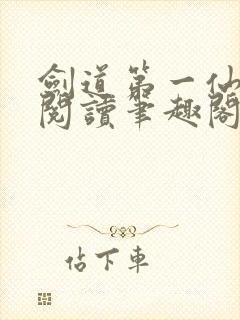 劍道第一仙
閱讀筆趣閣
估下車